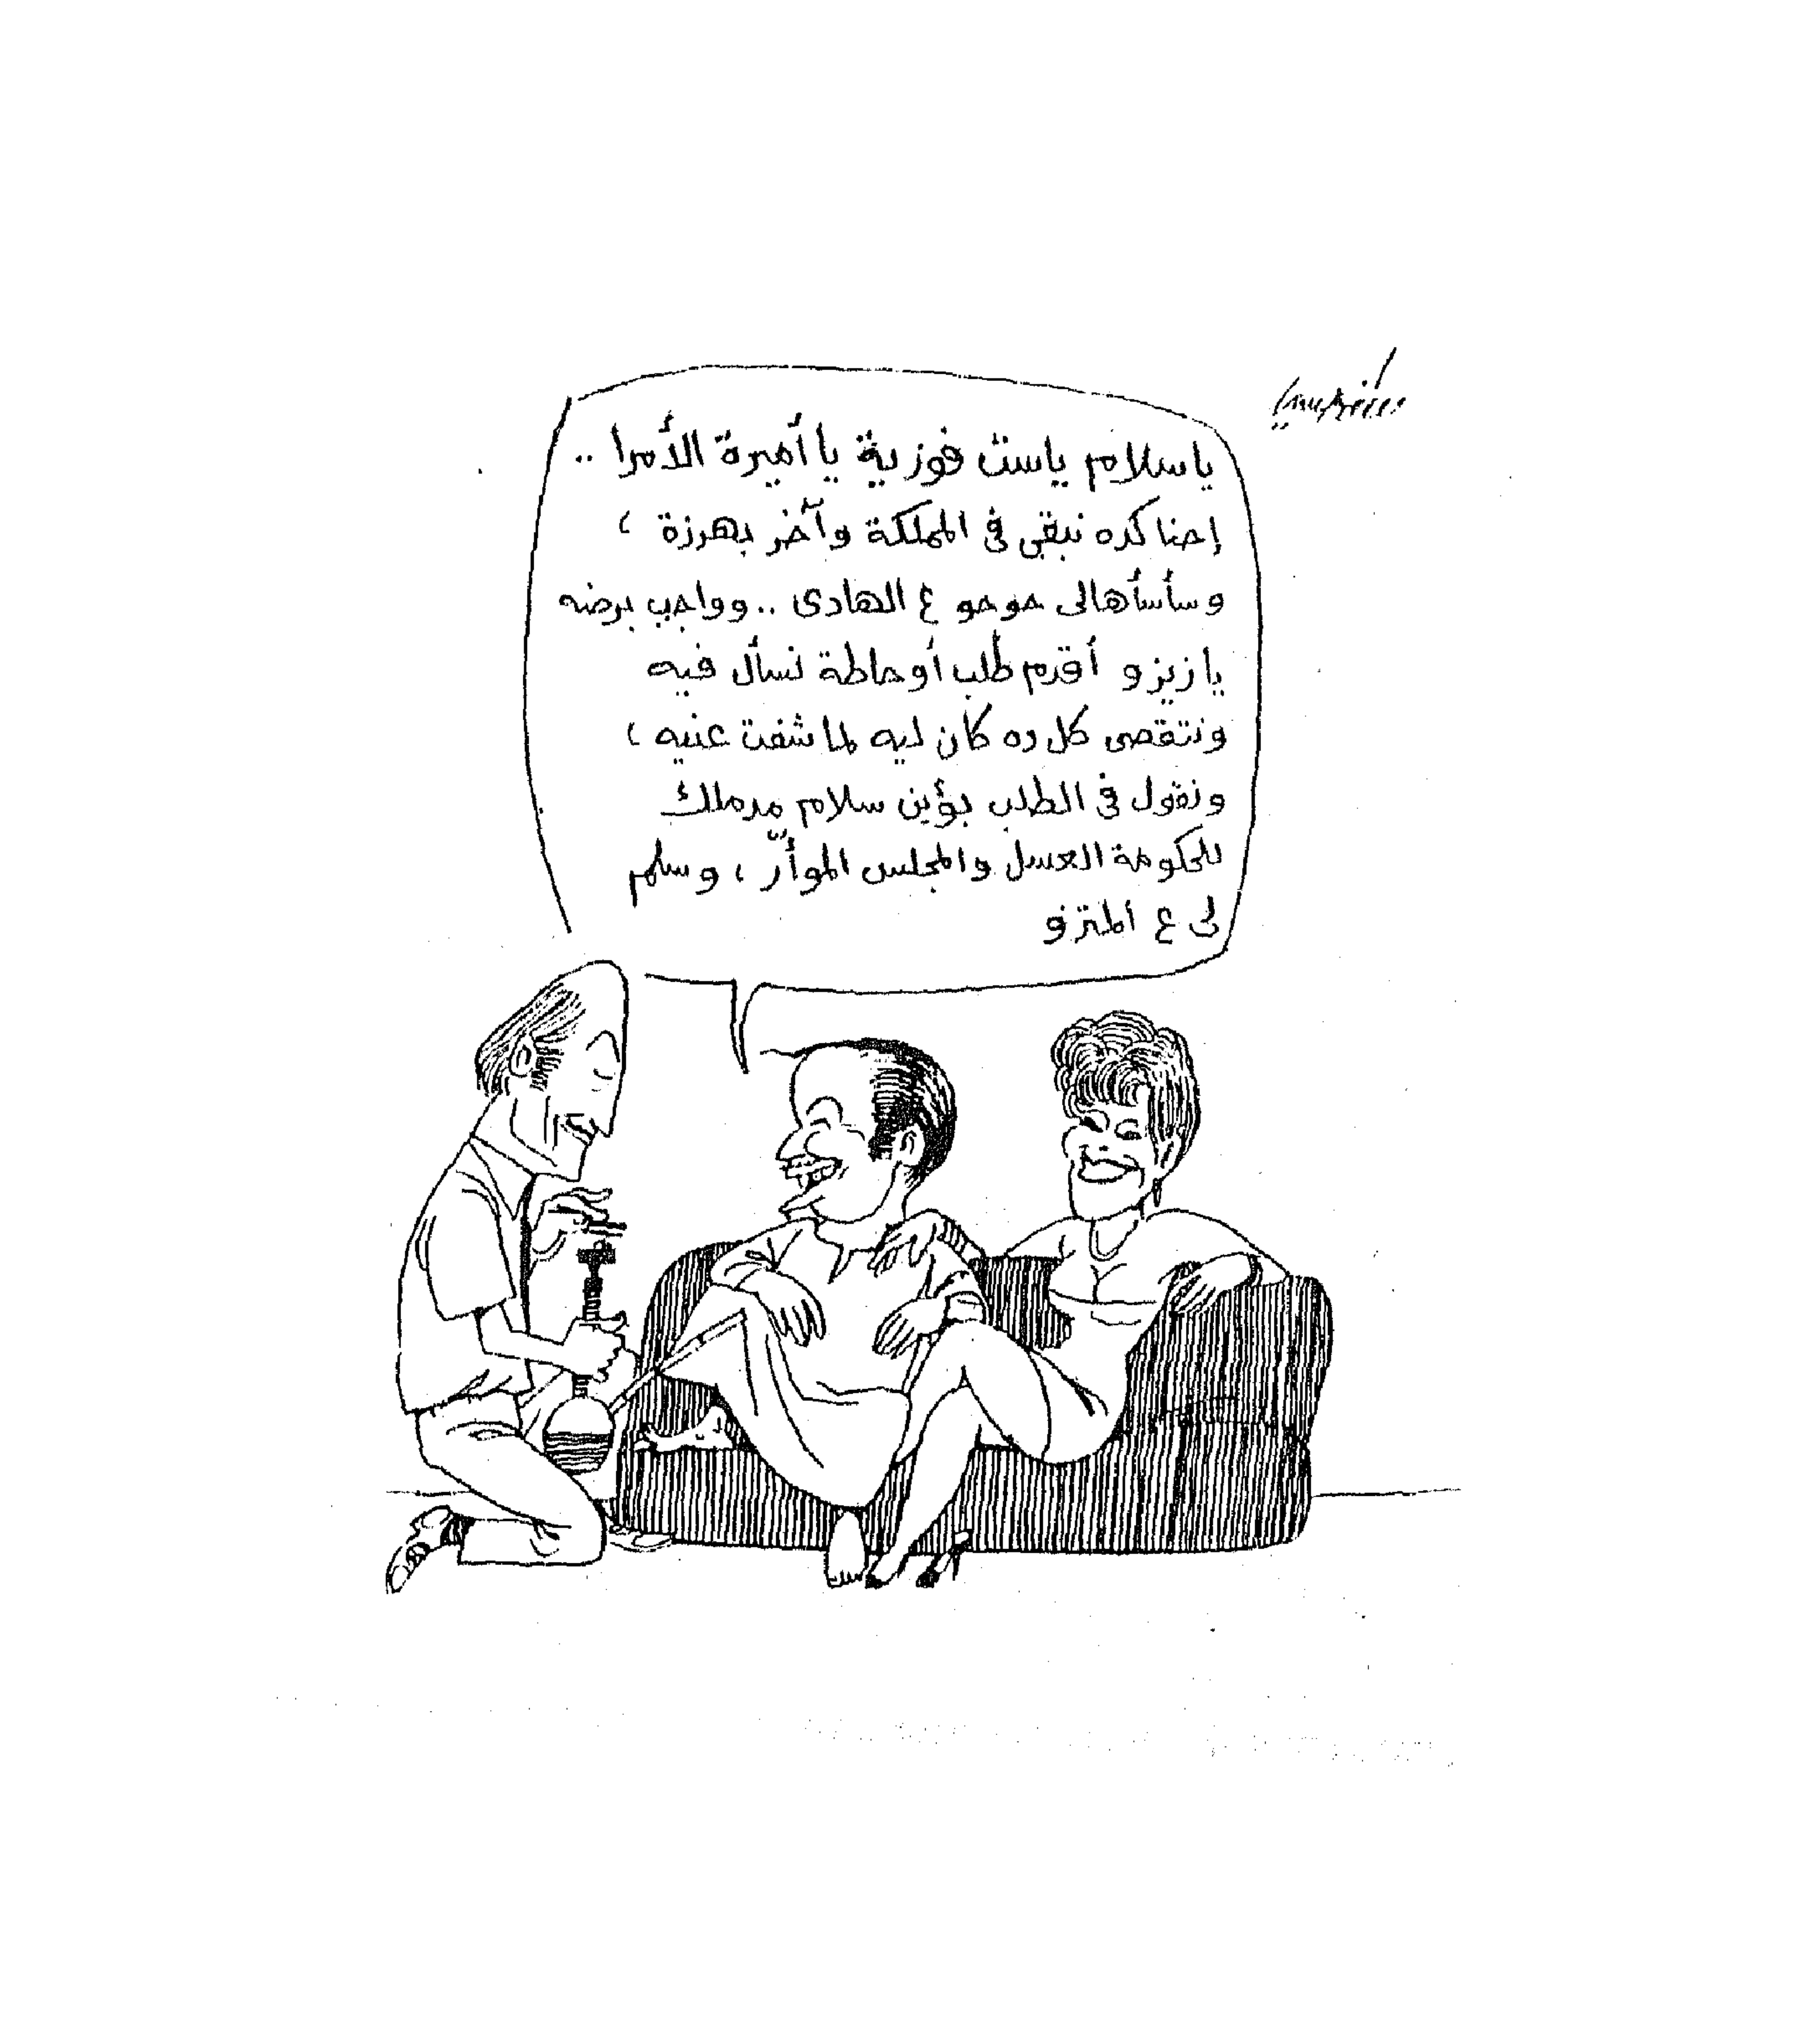 يا سلام ياست فوزية يا أميرة الأمرا ..
إحنا كده نبقى في المملكة وآخر بهرزة ،
وسأسأهالى حوحو ع الهادى .. وواجب برضه
يا زيزو أقدم طلب أوحاطة نسأل فيه
ونتقصى كل ده كان ليه لما شفت عنيه ،
ونقول فى الطلب بؤين سلام مدملك
للحكومة العسل والمجلس الموأرّ ، وسلم
لى ع المترو